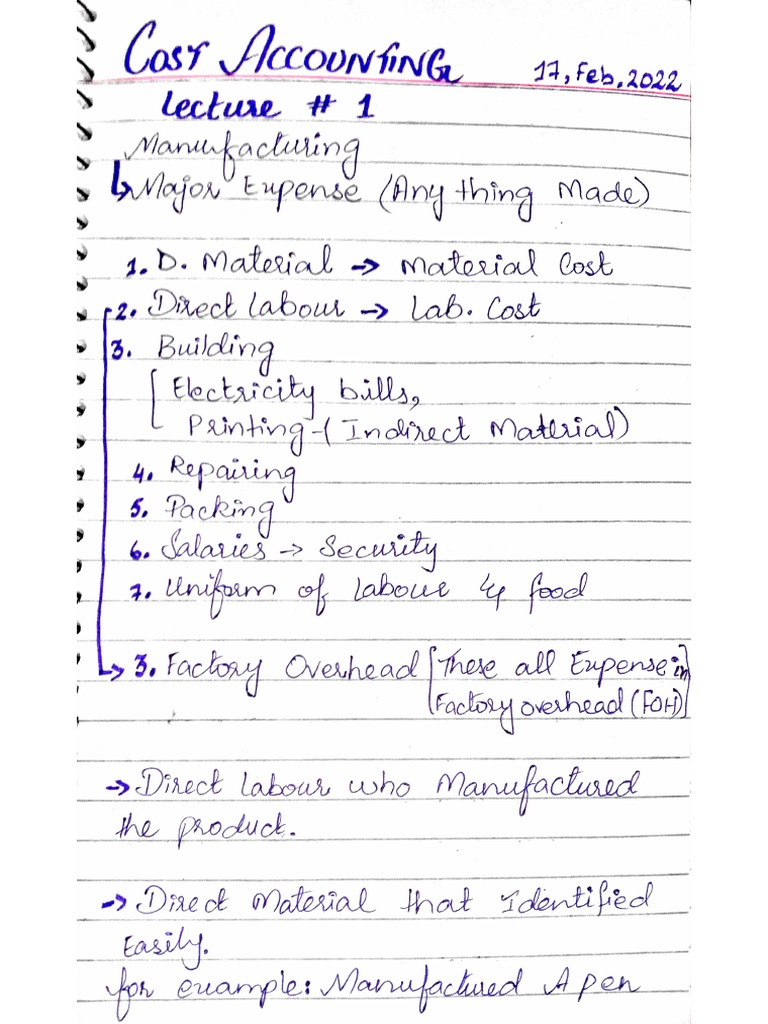 Cost Accounting 17, Feb, 2022
Lecture # 1
Manufacturing
↳ Major Expense (Any thing Made)
1. D. Material → Material Cost
2. Direct Labour → Lab. Cost
3. Building
Electricity bills,
Printing-(Indirect Material)
4. Repairing
5. Packing
6. Salaries → Security
7. Uniform of Labour & food
↳ 3. Factory Overhead [These all Expense in
Factory overhead (FOH)]
→ Direct Labour who Manufactured
the product.
→ Direct Material that Identified
Easily.
for example: Manufactured A pen